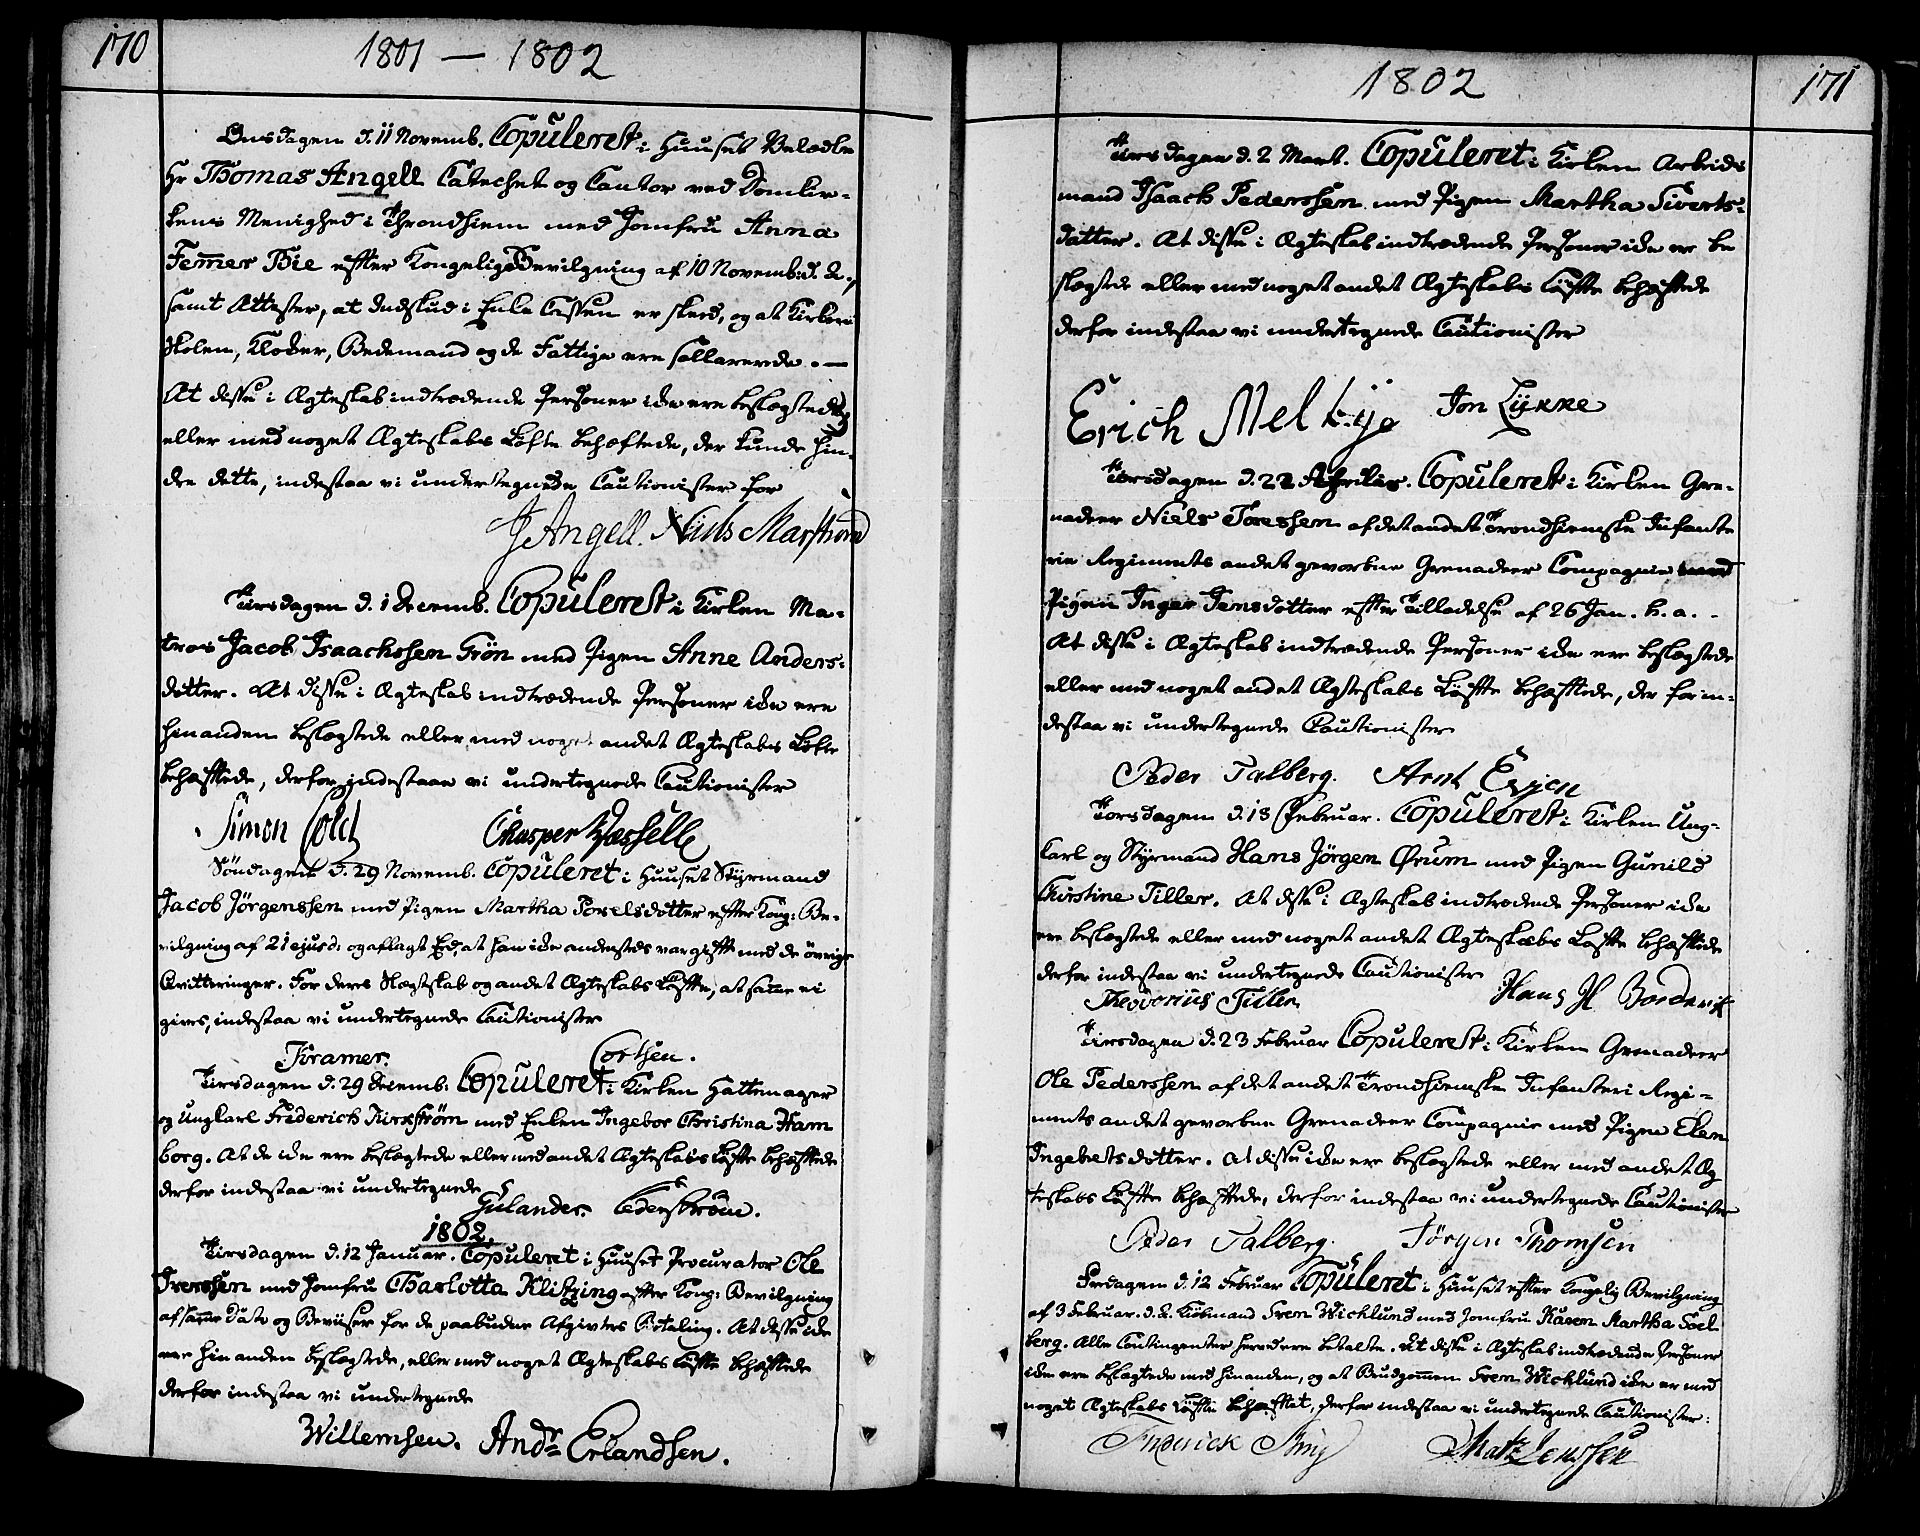 170
1801 — 1802
Onsdagen d. 11 Novemb. Copuleret i Huuset Velædle
Hr Thomas Angell Catechet og Cantor ved Domkir-
kens Menighed i Throndhiem med Jomfru Anna
Femer Bie efter Kongelig Bevilgning af 10 Novemb: d. A.,
samt Attester, at Indskud i Enke Cassen er skeed, og at Kirken
Skolen, Klokker, Bedemand og de Fattige ere sallarerede. —
At disse i Ægteskab indtrædende Personer ikke ere beslægtede
eller med noget Ægteskabs Løfte behæftede, der kunde hin-
dre dette, indestaa vi undertegnede Cautionister for
J Angell. Niels Marstrand
Tirsdagen d. 1 Decemb. Copuleret i Kirken Ma-
tros Jacob Isaachssen Grøn med Pigen Anne Anders-
dotter. At disse i Ægteskab indtrædende Personer ikke ere
hinanden beslægtede eller med noget andet Ægteskabs Løfte
behæftede, derfor indestaae vi undertegnede Cautionister
Simon Cold Chasper Hasselle
Søndagen d. 29 Novemb. Copuleret i Huuset Styrmand
Jacob Jörgenssen med Pigen Martha Povelsdotter efter Kong: Be-
vilgning af 21 ejusd: og aflagt Ed, at han ikke andensteds var gift med de övrige
Qvitteringer. For deres Slægtskab og andet Ægteskabs Løfte, at samme ei
gives, indestaa vi undertegnede Cautionister
Kramer. Cortsen.
Tirsdagen d. 29 Decemb: Copuleret i Kirken Hattemager
og Ungkarl Frederich Kirstrøm med Enken Ingebor Christina Ham
borg. At de ikke ere beslægtede eller med andet Ægteskabs Løfte behæftede
derfor indestaa vi undertegnede
Gulander. Cederstrøm.
1802.
Tirsdagen d. 12 Januar. Copuleret i Huuset Procurator Ole
Iverssen med Jomfru Charlotta Klitzing efter Kong: Bevilgning
af samme Dato og Beviiser for de paabudne Afgivters Betaling. At disse ikke
ere hinanden beslægtede, eller med noget Ægteskabs Løfte behæftede
derfor indestaa vi undertegnede
Willemsen. Andr. Erlandsen.
171
1802
Tirsdagen d. 2 Mart. Copuleret i Kirken Arbeids
mand Isaach Pederssen med Pigen Martha Siverts-
dotter. At disse i Ægteskab indtrædende Personer ikke er be
slægtede eller med noget andet Ægteskabs Løfte behæftede
derfor indestaa vi undertegnede Cautionister
Erich Melhye Jon Lykke
Torsdagen d. 22 Aprilis. Copuleret i Kirken Gre-
nadeer Niels Toressen af det andet Trondhiemske Infante
rie Regiments andet gevorbne Grenadeer Compagnie med
Pigen Inger Jensdotter efter Tilladelse af 26 Jan. h. a. -
At disse i Ægteskab indtrædende Personer ikke ere beslægtede
eller med noget andet Ægteskabs Løfte behæftede, der for in-
destaa vi undertegnede Cautionister
Peder Talberg. Arnt Evjen
Torsdagen d. 18 Februar. Copuleret i Kirken Ung-
karl og Styrmand Hans Jörgen Ørum med Pigen Gunild
Christine Tiller. At disse i Ægteskab indtrædende Personer ikke
ere beslægtede eller med noget andet Ægteskabs Løfte behæftede
derfor indestaa vi undertegnede Cautionister
Theodorius Tiller Hans H Bordevik
Tirsdagen d. 23 Februar Copuleret i Kirken Grenadeer
Ole Pederssen af det andet Trondhiemske Infanteri Regi-
ments andet gevorbne Grenadeer Compagnie med Pigen Elen
Ingebretsdotter. At disse ikke ere beslægtede eller med andet Æg
teskabs Løfte behæftede, derfor indestaa vi undertegnede Cautionister
Peder Talberg. Jörgen Thomsen
Fredagen d. 12 Februar Copuleret i Huuset efter Kongelig Bevilgning
af 3 Februar. d. A. Kiöbmand Sven Wicklund med Jomfru Karen Martha Sol
berg. Alle Contingenter herved ere betalte. At disse i Ægteskab indtrædende Personer
ikke ere beslægtede med hinanden, og at Brudgommen Sven Wicklund ikke er med
noget Ægteskabs Løfte behæftet, derfor indestaa vi undertegnede Cautionister:
Friderick Matz Jenssen